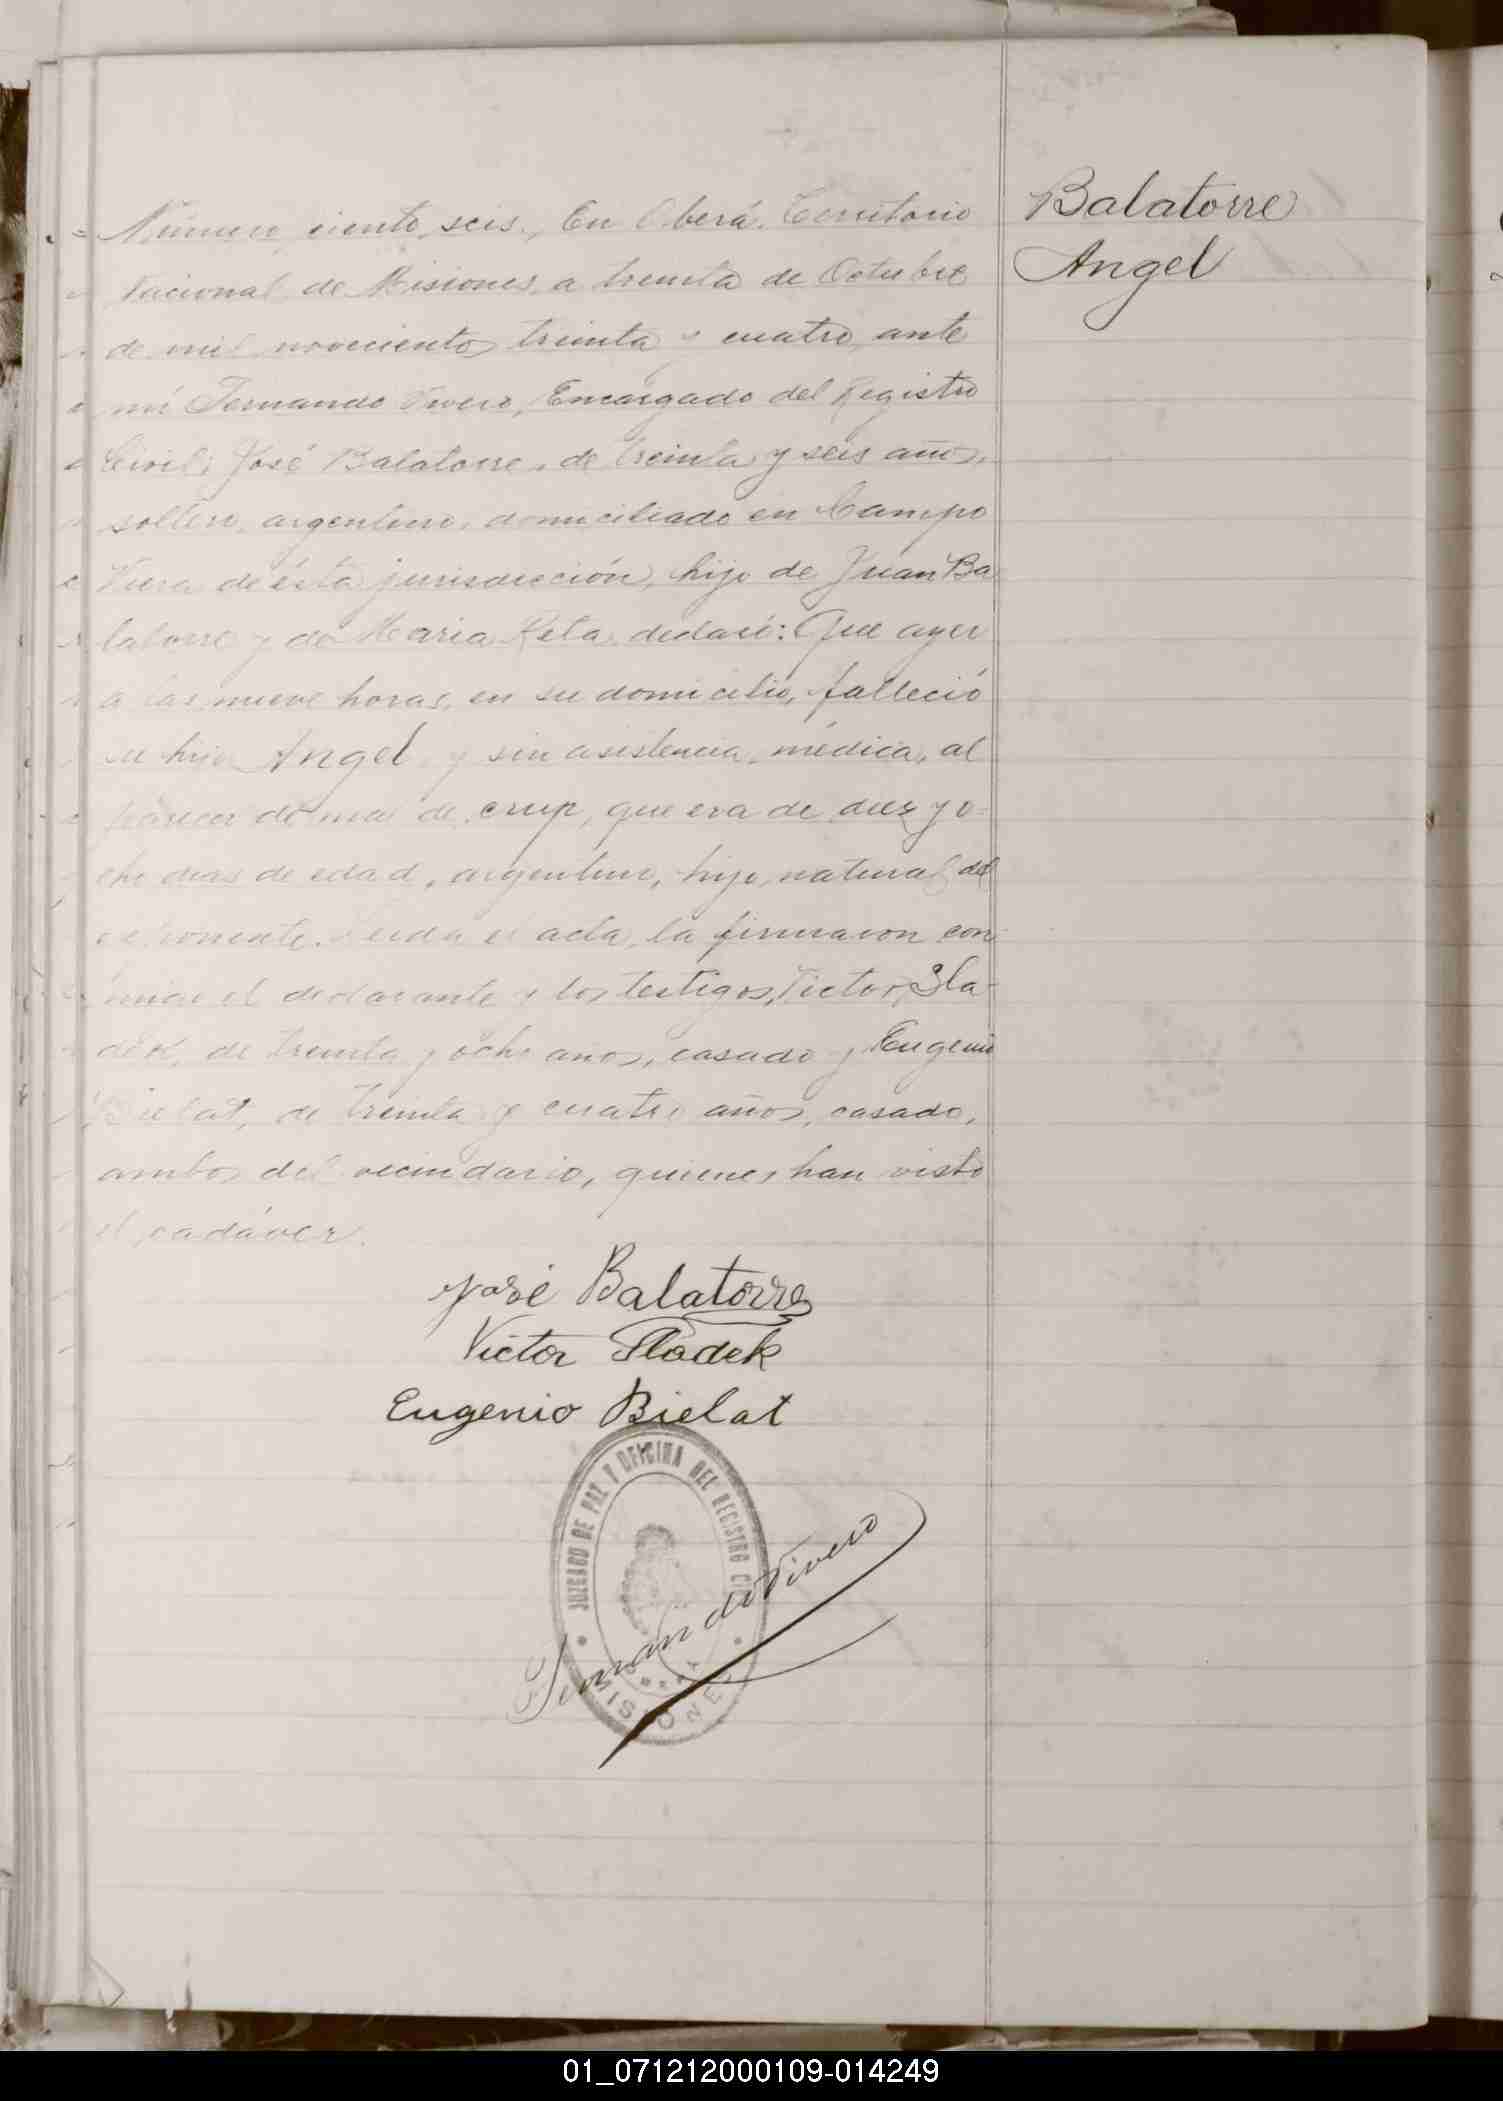 Balatorre
Angel
Número ciento seis., En Oberá. Territorio
Nacional de Misiones, a treinta de Octubre
de mil novecientos treinta y cuatro, ante
mí Fernando Vivero, Encargado del Registro
Civil; José Balatorre, de treinta y seis años,
soltero, argentino, domiciliado en Campo
Viera de ésta jurisdicción, hijo de Juan Ba
latorre y de Maria Reta, declaró: Que ayer
a las nueve horas, en su domicilio, falleció
su hijo Angel y sin asistencia médica, al
parecer de mal de crup, que era de diez y o-
cho dias de edad, argentino, hijo natural del
exponente. Leida el acta, la firmaron con
migo el declarante y los testigos, Victor Sla-
dek, de treinta y ocho años, casado y Eugenio
Bielat, de treinta y cuatro años, casado,
ambos del vecindario, quienes han visto
el cadáver.
José Balatorre
Victor Sladek
Eugenio Bielat
JUZGADO DE PAZ Y OFICINA DEL REGISTRO CI
MISIONES
Fernando Vivero
01_071212000109-014249